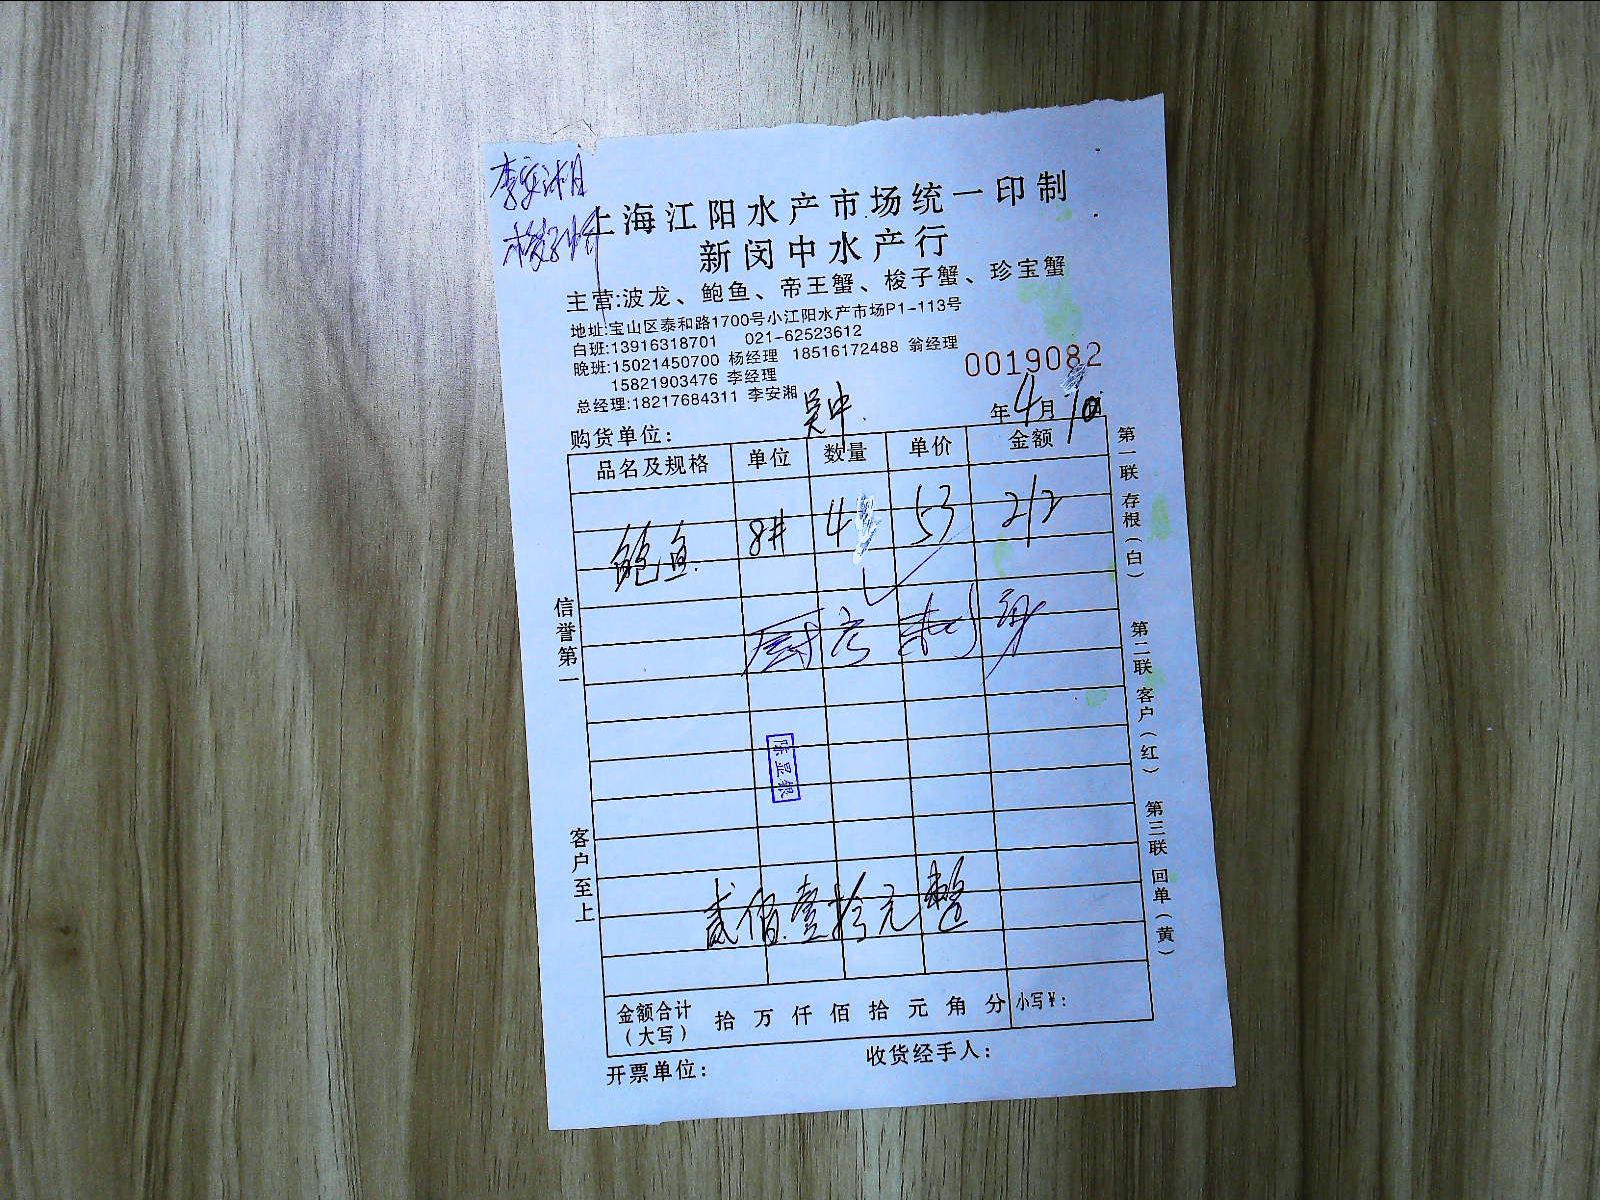 李安湘
上海江阳水产市场统一印制
新闵中水产行
主营:波龙、鲍鱼、帝王蟹、梭子蟹、珍宝蟹
地址:宝山区泰和路1700号小江阳水产市场P1-113号
白班:13916318701 021-62523612
晚班:15021450700 杨经理 18516172488 翁经理
15821903476 李经理
总经理:18217684311 李安湘
0019082
购货单位: 吴中
年4月10日
品名及规格 单位 数量 单价 金额
鲍鱼 8# 4 53 212
贰佰壹拾元整
金额合计(大写) 拾万仟佰拾元角分 小写¥:
开票单位: 收货经手人:
信誉第一 客户至上
第一联 存根(白) 第二联 客户(红) 第三联 回单(黄)